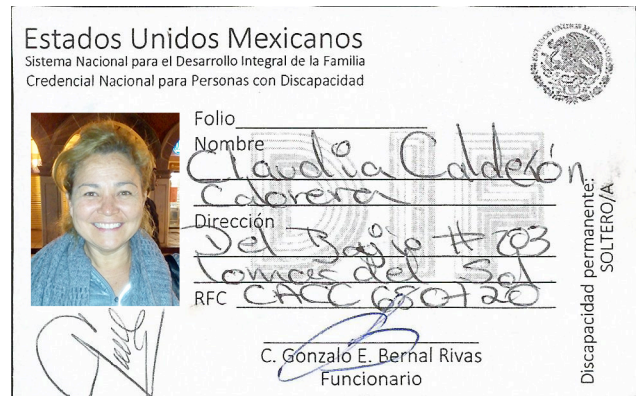 Estados Unidos Mexicanos
Sistema Nacional para el Desarrollo Integral de la Familia
Credencial Nacional para Personas con Discapacidad
ESTADOS UNIDOS MEXICANOS
Folio
Nombre
Claudia Calderón
Cabrera
Dirección
Del Bajio # 203
Lomas del Sol
RFC CACC 680720
C. Gonzalo E. Bernal Rivas
Funcionario
Discapacidad permanente:
SOLTERO/A